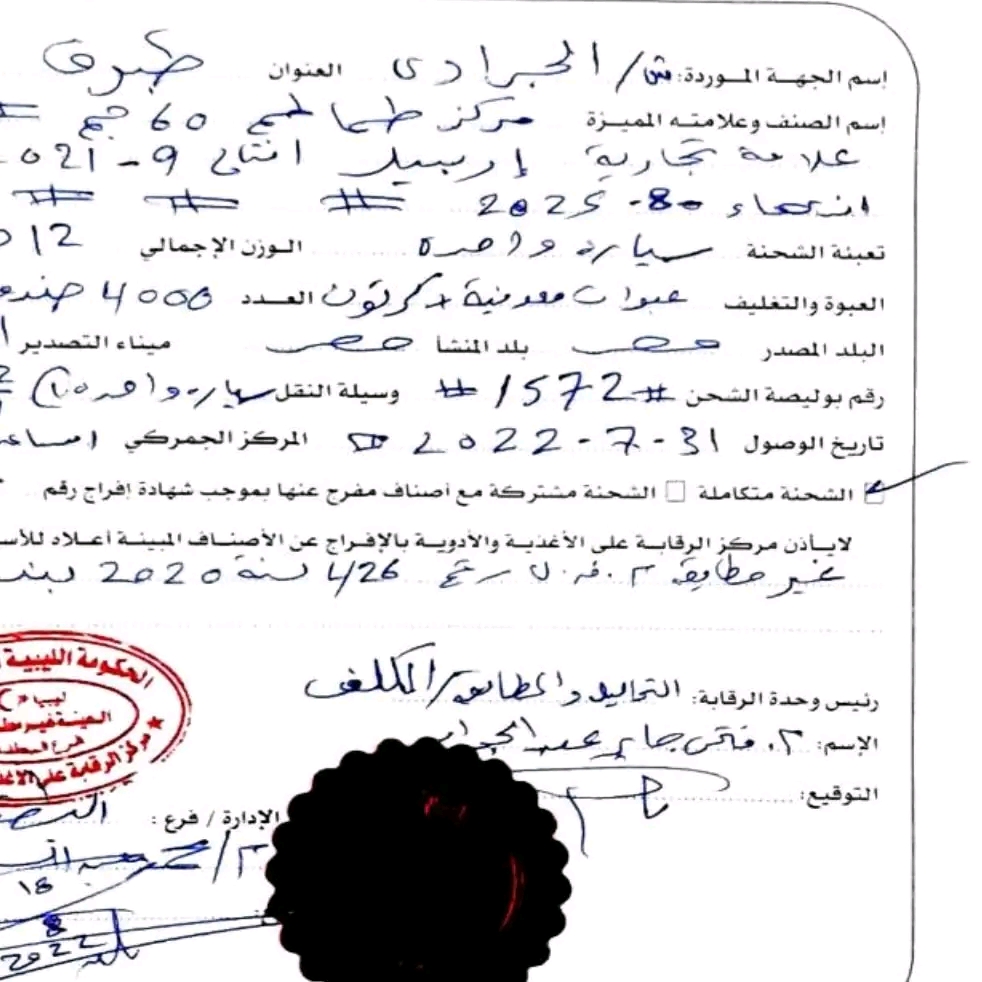 إسم الجهة المـوردة: ش/ الجرادى العنوان طبرق
إسم الصنف وعلامتـه المميـزة مركز طماطم 60 جم #
علامة تجارية إربيل انتاج 9-2021
انتهاء 08-2025 # # #
تعبئة الشحنة سيارة واحدة الـوزن الإجمالي 12
العبوة والتغليف عبوات معدنية + كرتون العـدد 4000 صندو
البلد المصدر مصر بلد المنشأ مصر ميناء التصدير
رقم بوليصة الشحن #1572# وسيلة النقل سيارة واحدة
تاريخ الوصول 31-7-2022 المركز الجمركي امساعد
الشحنة متكاملة الشحنة مشتركة مع أصناف مفرج عنها بموجب شهادة إفراج رقم
لايـأذن مركـز الرقابـة على الأغذيـة والأدويـة بالإفـراج عن الأصناف المبينـة أعـلاه للأسـ
غير مطابقة م.ق.ل رقم 426/ لسنة 2020
الحكومة الليبية
ليبيا
العينة غير مط
مركز الرقابة على الاغذ
رئيس وحدة الرقابة: التحاليل والمطابقة/ المكلف
الإسم: م. فتحى جابر عبدالجواد
التوقيع:
الإدارة / فرع :
م/ محمد
18
8
2022